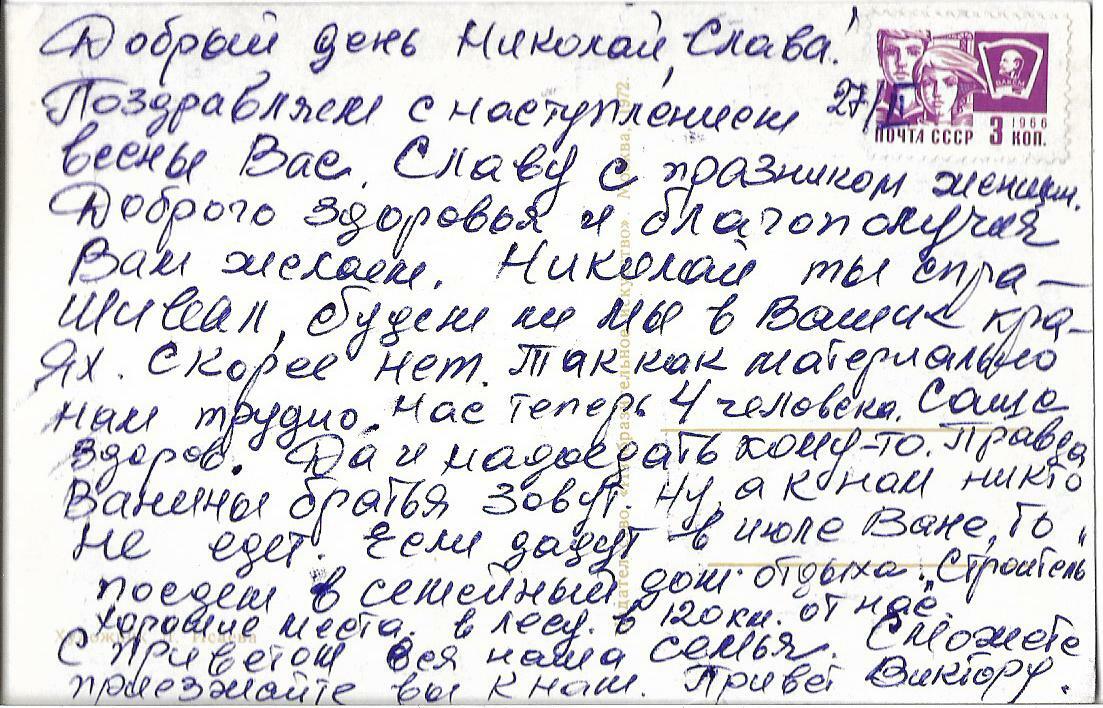 Добрый день Николай, Слава!
27/II
ВЛКСМ
1966
ПОЧТА СССР 3 КОП.
Поздравляем с наступлением
весны Вас, Славу с празником женщин.
Доброго здоровья и благополучия
Вам желаем. Николай ты спра-
шивал, будем ли мы в Ваших кра-
ях. Скорее нет. Так как материально
нам трудно. Нас теперь 4 человека. Саша
здоров. Да и надоедать кому-то. Правда
Ванины братья зовут. Ну, а к нам никто
не едет. Если дадут в июле Ване, то
поедем в семейный дом отдыха „Строитель"
хорошие места. в лесу. в 120 км. от нас.
С приветом вся наша семья. Сможете
приезжайте вы к нам. Привет Виктору.
Художник Исаева
Издательство «Изобразительное искусство». Москва, 1972.